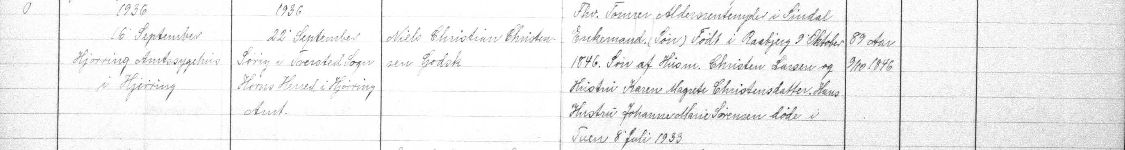 0
1936
16 September
Hjørring Amtssygehus
i Hjørring
1936
22 September
Sørig i Tversted Sogn
Horns Herred i Hjørring
Amt.
Niels Christian Christen-
sen Godsk
Fhv. Tømrer Aldersrentenyder i Sindal
Enkemand. (Søn) Født i Raabjerg 9' Oktober
1846. Søn af Husm. Christen Larsen og
Hustru Karen Magrete Christensdatter. Hans
Hustru Johanne Marie Sørensen døde i
Tuen 8' Juli 1933
89 Aar
9/10 1846